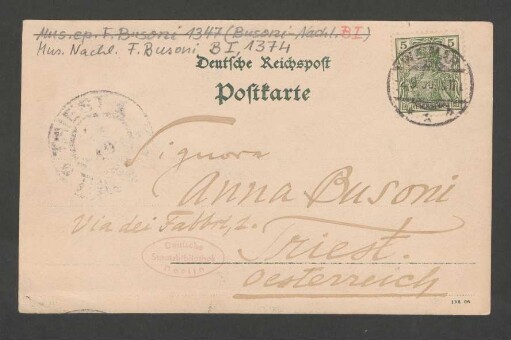 Mus.ep. F. Busoni 1347 (Busoni-Nachl. BI)
Mus. Nachl. F. Busoni B I, 1374
Deutsche Reichspost
Postkarte
5 5
Signora
Anna Busoni
Via dei Fabbri, 2.
Triest.
Oesterreich
Deutsche
Staatsbibliothek
Berlin